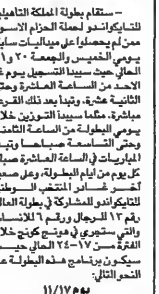 - ستقام بطولة المملكة التأهيلية
للتايكواندو لحملة الحزام الاسود
ممن لم يحصلوا على ميداليات سابقة
يومي الخميس والجمعة ٢٠ و٢١
الحالي حيث سيبدأ التسجيل يوم غد
الاحد من الساعة العاشرة وحتى
الثانية عشرة، وتبدأ بعد ذلك القرعة
مباشرة، مثلما سيبدأ التوزين خلال
يومي البطولة من الساعة الثامنة
وحتى التاسعة صباحاً وتبدأ
المباريات في الساعة العاشرة صباحاً
كل يوم من أيام البطولة، وعلى صعيد
آخر غادر المنتخب الوطني
للتايكواندو للمشاركة في بطولة العالم
رقم ١٣ للرجال ورقم ٦ للآنسات
والتي ستجري في هونج كونج خلال
الفترة من ١٧-٢٤ الحالي حيث
سيكون برنامج هذه البطولة على
النحو التالي:
يوم ١١/١٧